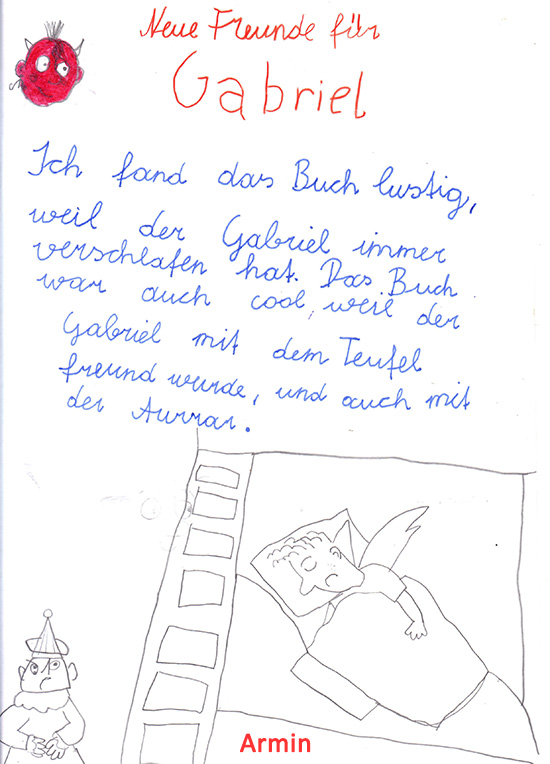 Neue Freunde für
Gabriel
Ich fand das Buch lustig,
weil der Gabriel immer
verschlafen hat. Das Buch
war auch cool, weil der
Gabriel mit dem Teufel
freund wurde, und auch mit
der Aurrar.
Armin